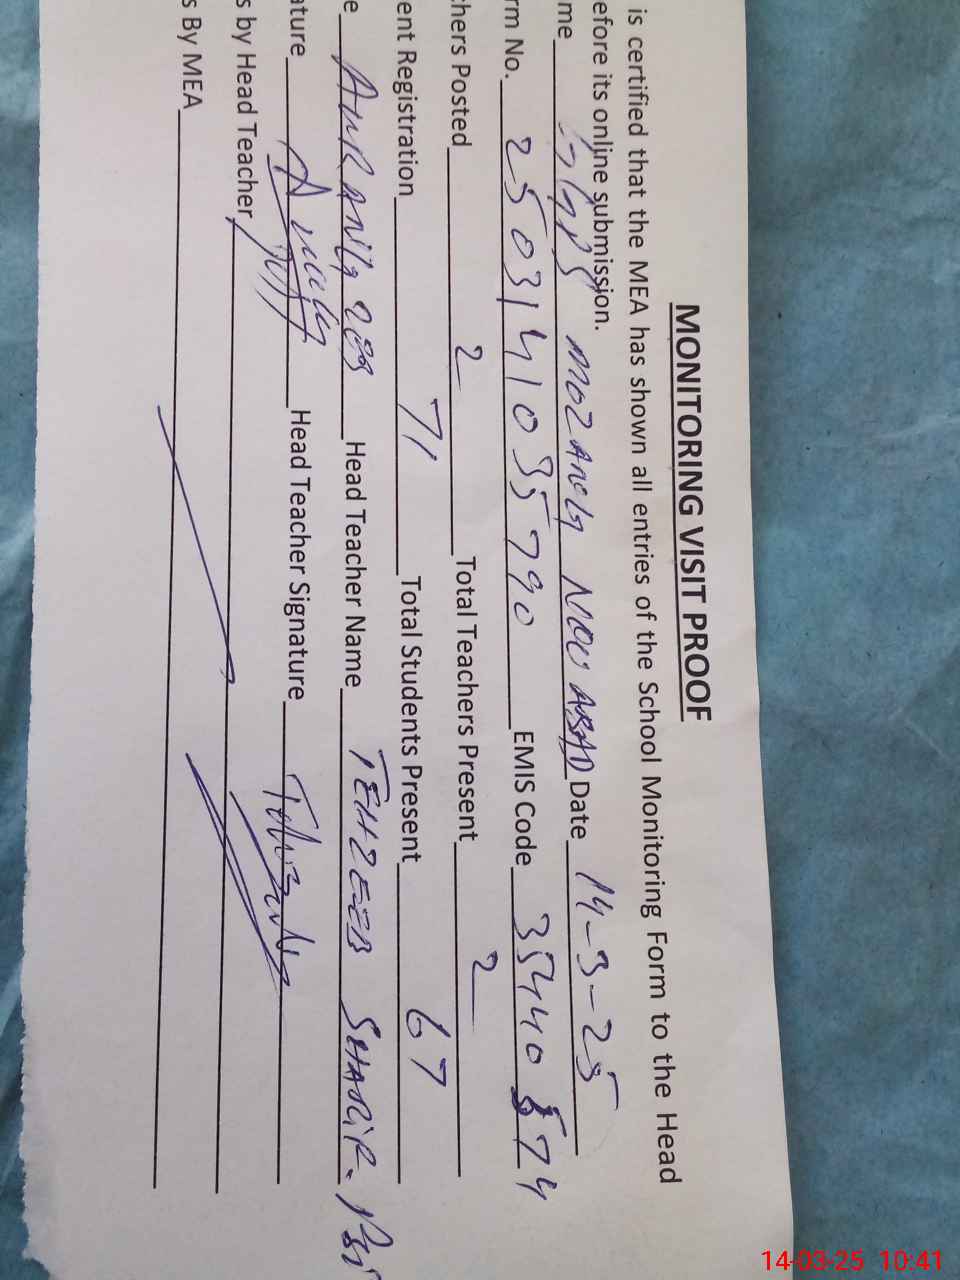 MONITORING VISIT PROOF
is certified that the MEA has shown all entries of the School Monitoring Form to the Head
efore its online submission.
me MOZANG NOU ABAD Date 14-3-25
rm No. 2503141035790 EMIS Code 35440 574
chers Posted 2 Total Teachers Present 2
ent Registration 71 Total Students Present 67
e Head Teacher Name TEHZEEB SHARIF.
ature Head Teacher Signature
s by Head Teacher
s By MEA
14-03-25 10:41